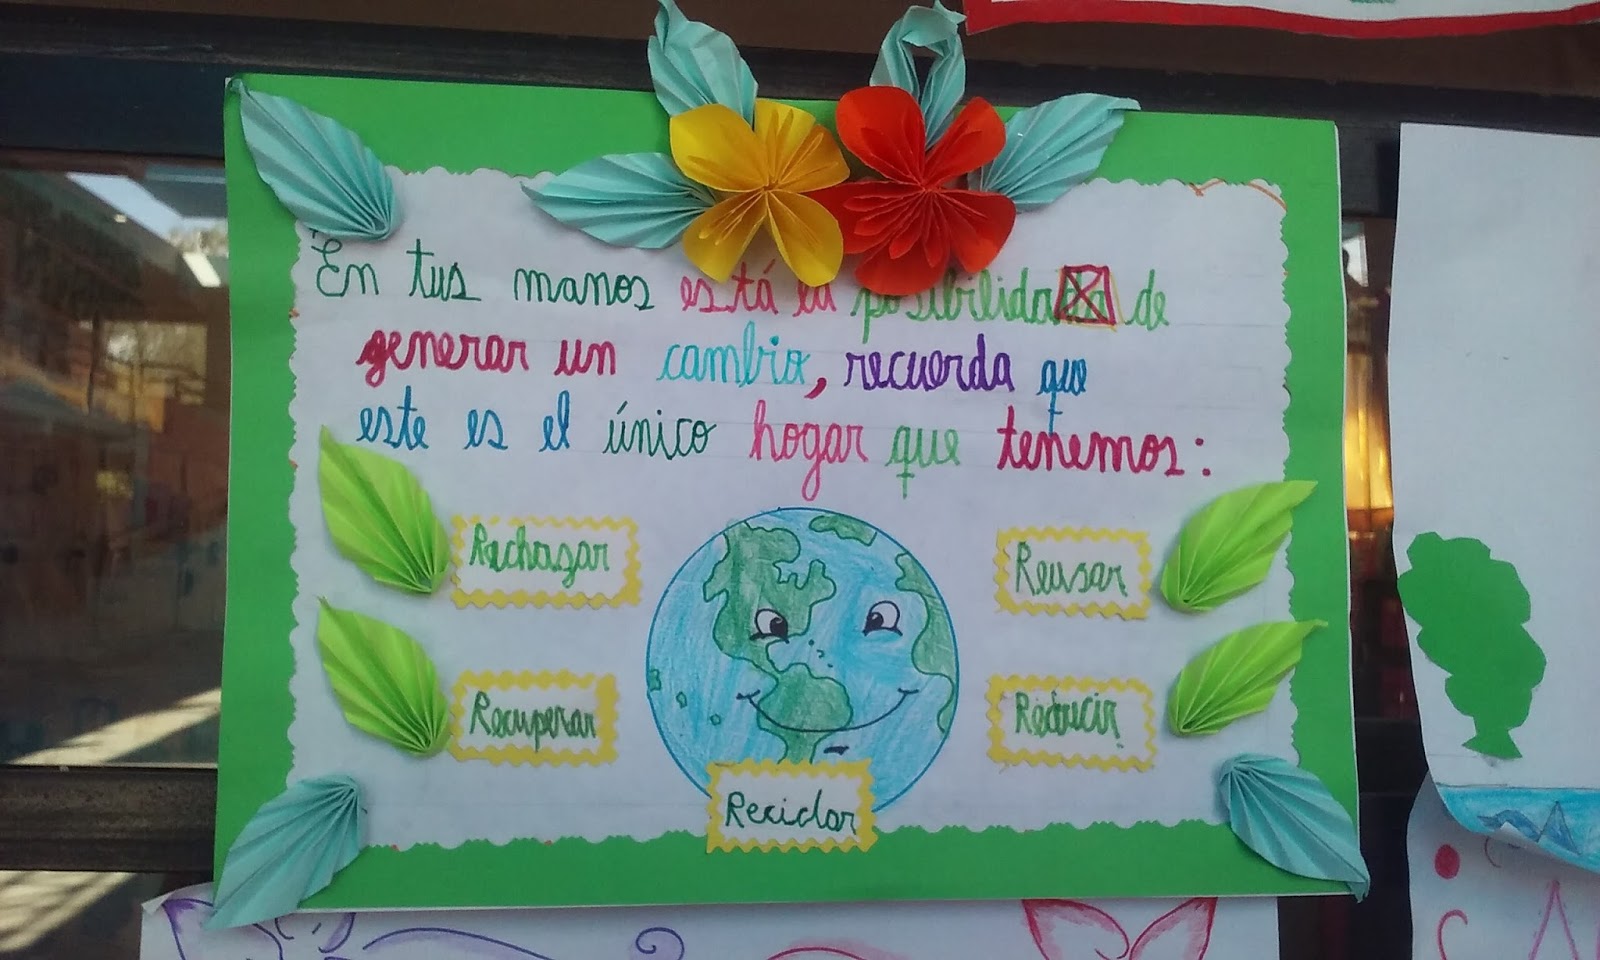 En tus manos está la posibilida de
generar un cambio, recuerda que
este es el único hogar que tenemos:
Rechazar
Reusar
Recuperar
Reducir
Reciclar